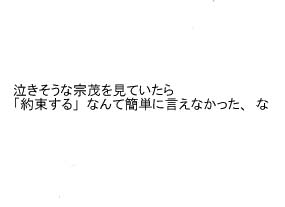 泣きそうな宗茂を見ていたら
「約束する」なんて簡単に言えなかった、な